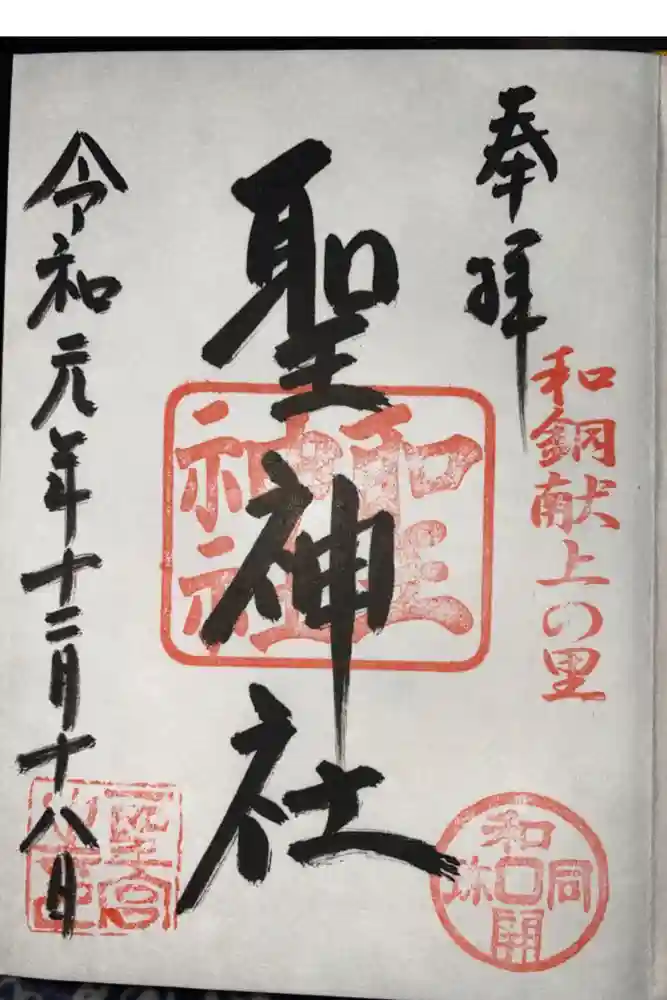 奉拝
和銅献上の里
聖神社
聖神社
令和元年十二月十八日
和同開珎